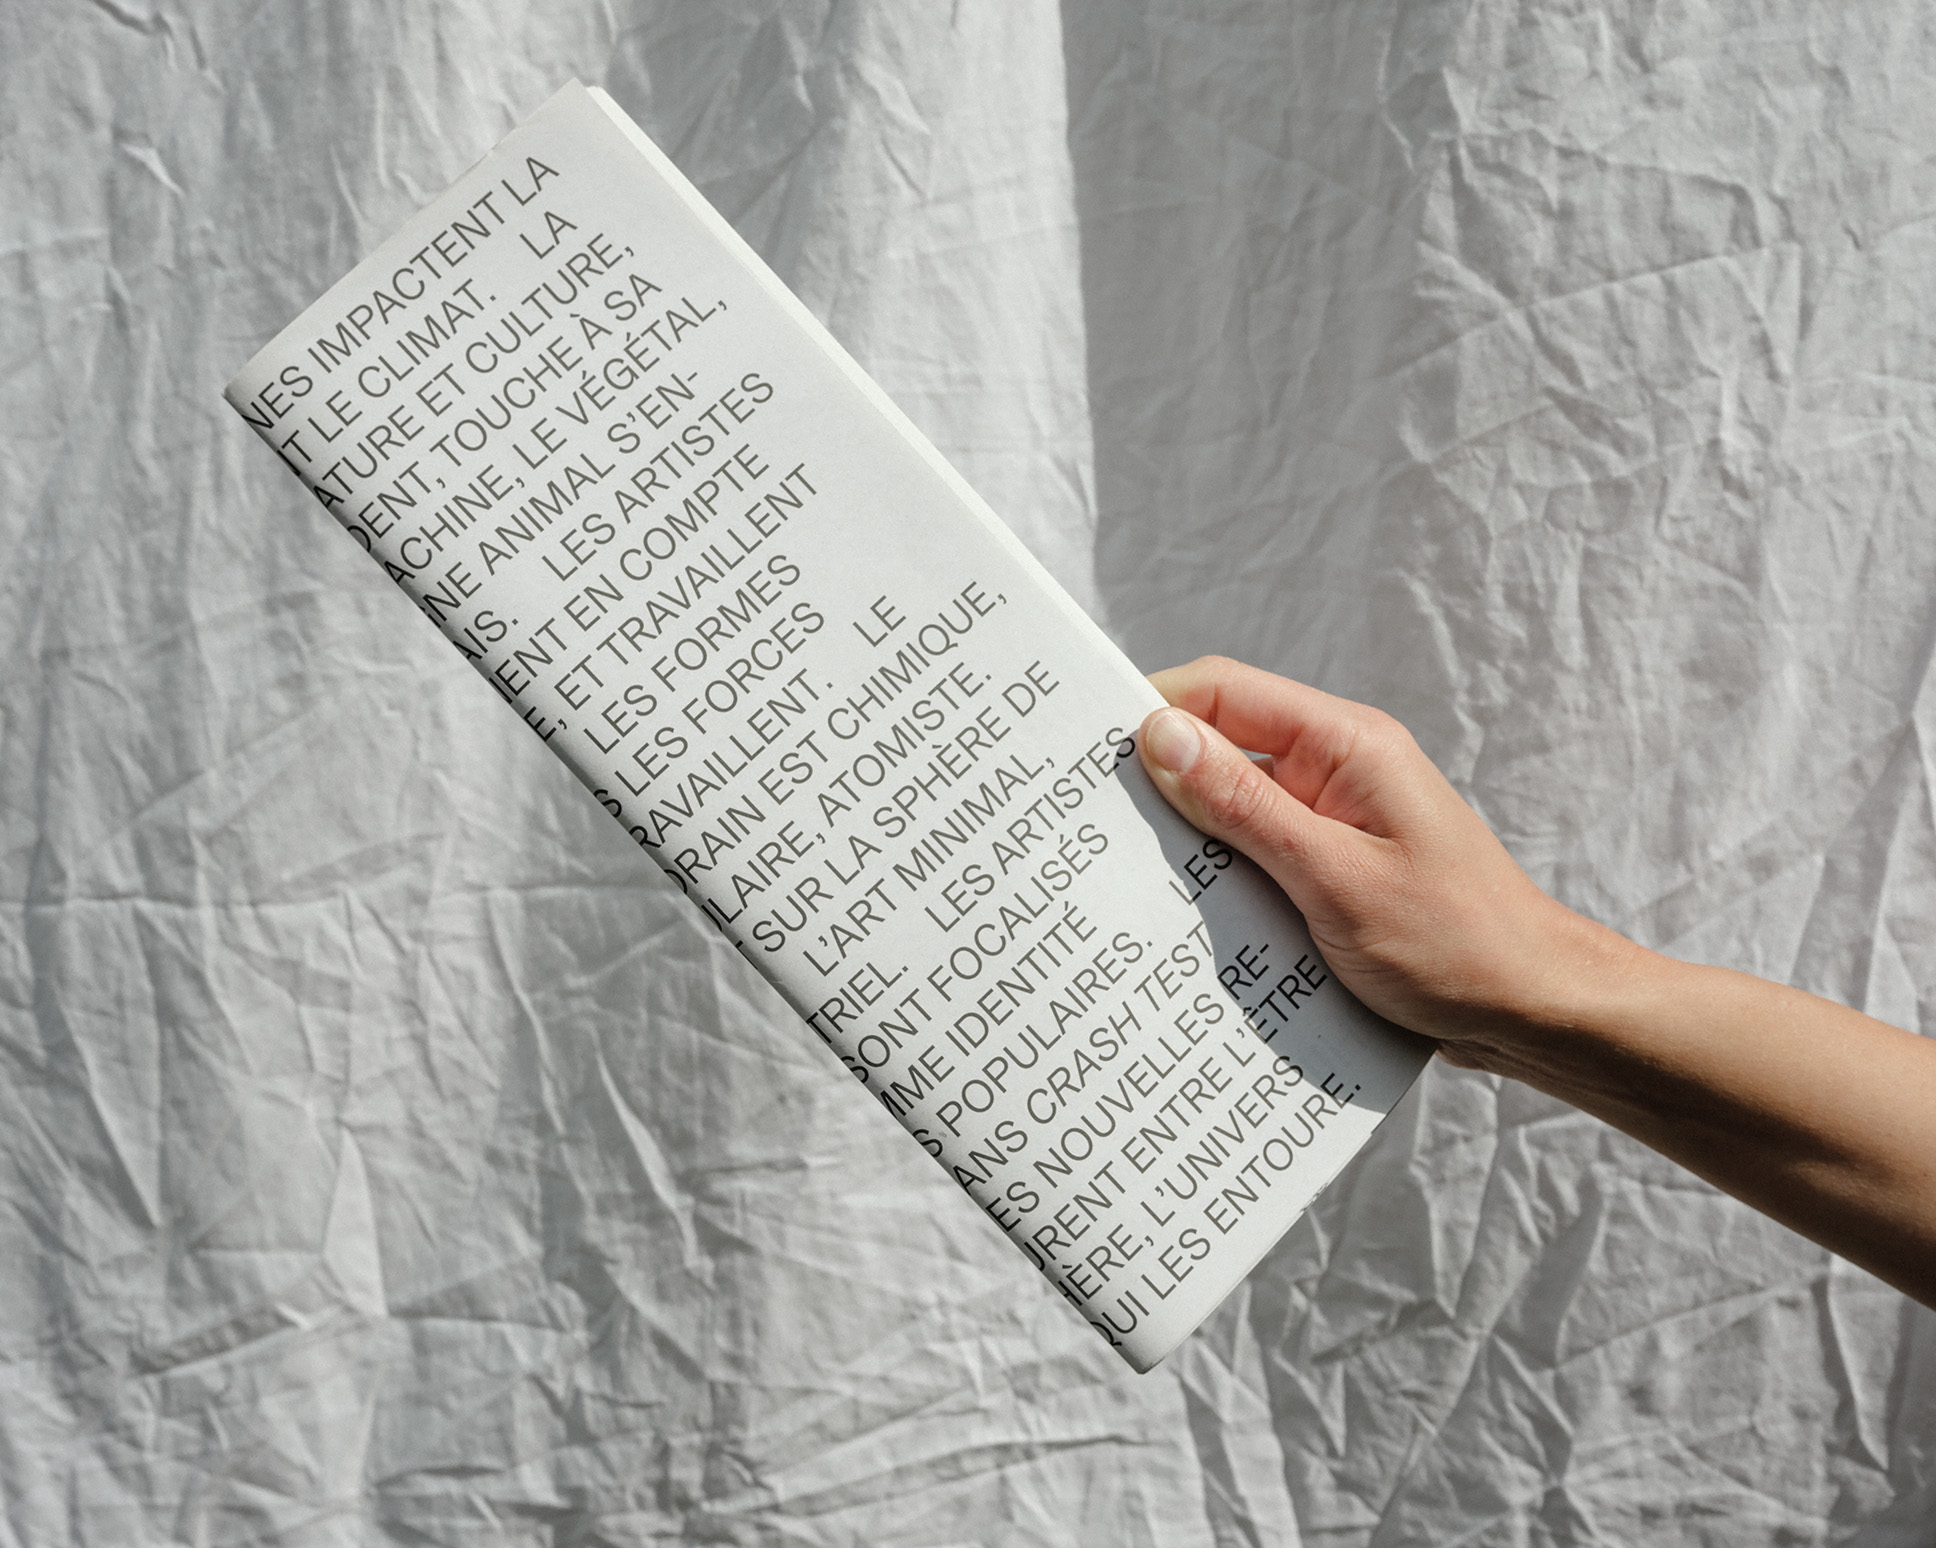 NES IMPACTENT LA
T LE CLIMAT. LA
ATURE ET CULTURE,
DENT, TOUCHE À SA
ACHINE, LE VÉGÉTAL,
NE ANIMAL S'EN-
AIS. LES ARTISTES
ENT EN COMPTE
E, ET TRAVAILLENT
LES FORMES
S LES FORCES
RAVAILLENT. LE
ORAIN EST CHIMIQUE,
ULAIRE, ATOMISTE.
SUR LA SPHÈRE DE
L'ART MINIMAL,
TRIEL. LES ARTISTES
SONT FOCALISÉS
MME IDENTITÉ
S POPULAIRES. LES
ANS CRASH TEST
ES NOUVELLES RE-
URENT ENTRE L'ÊTRE
HÈRE, L'UNIVERS
QUI LES ENTOURE.